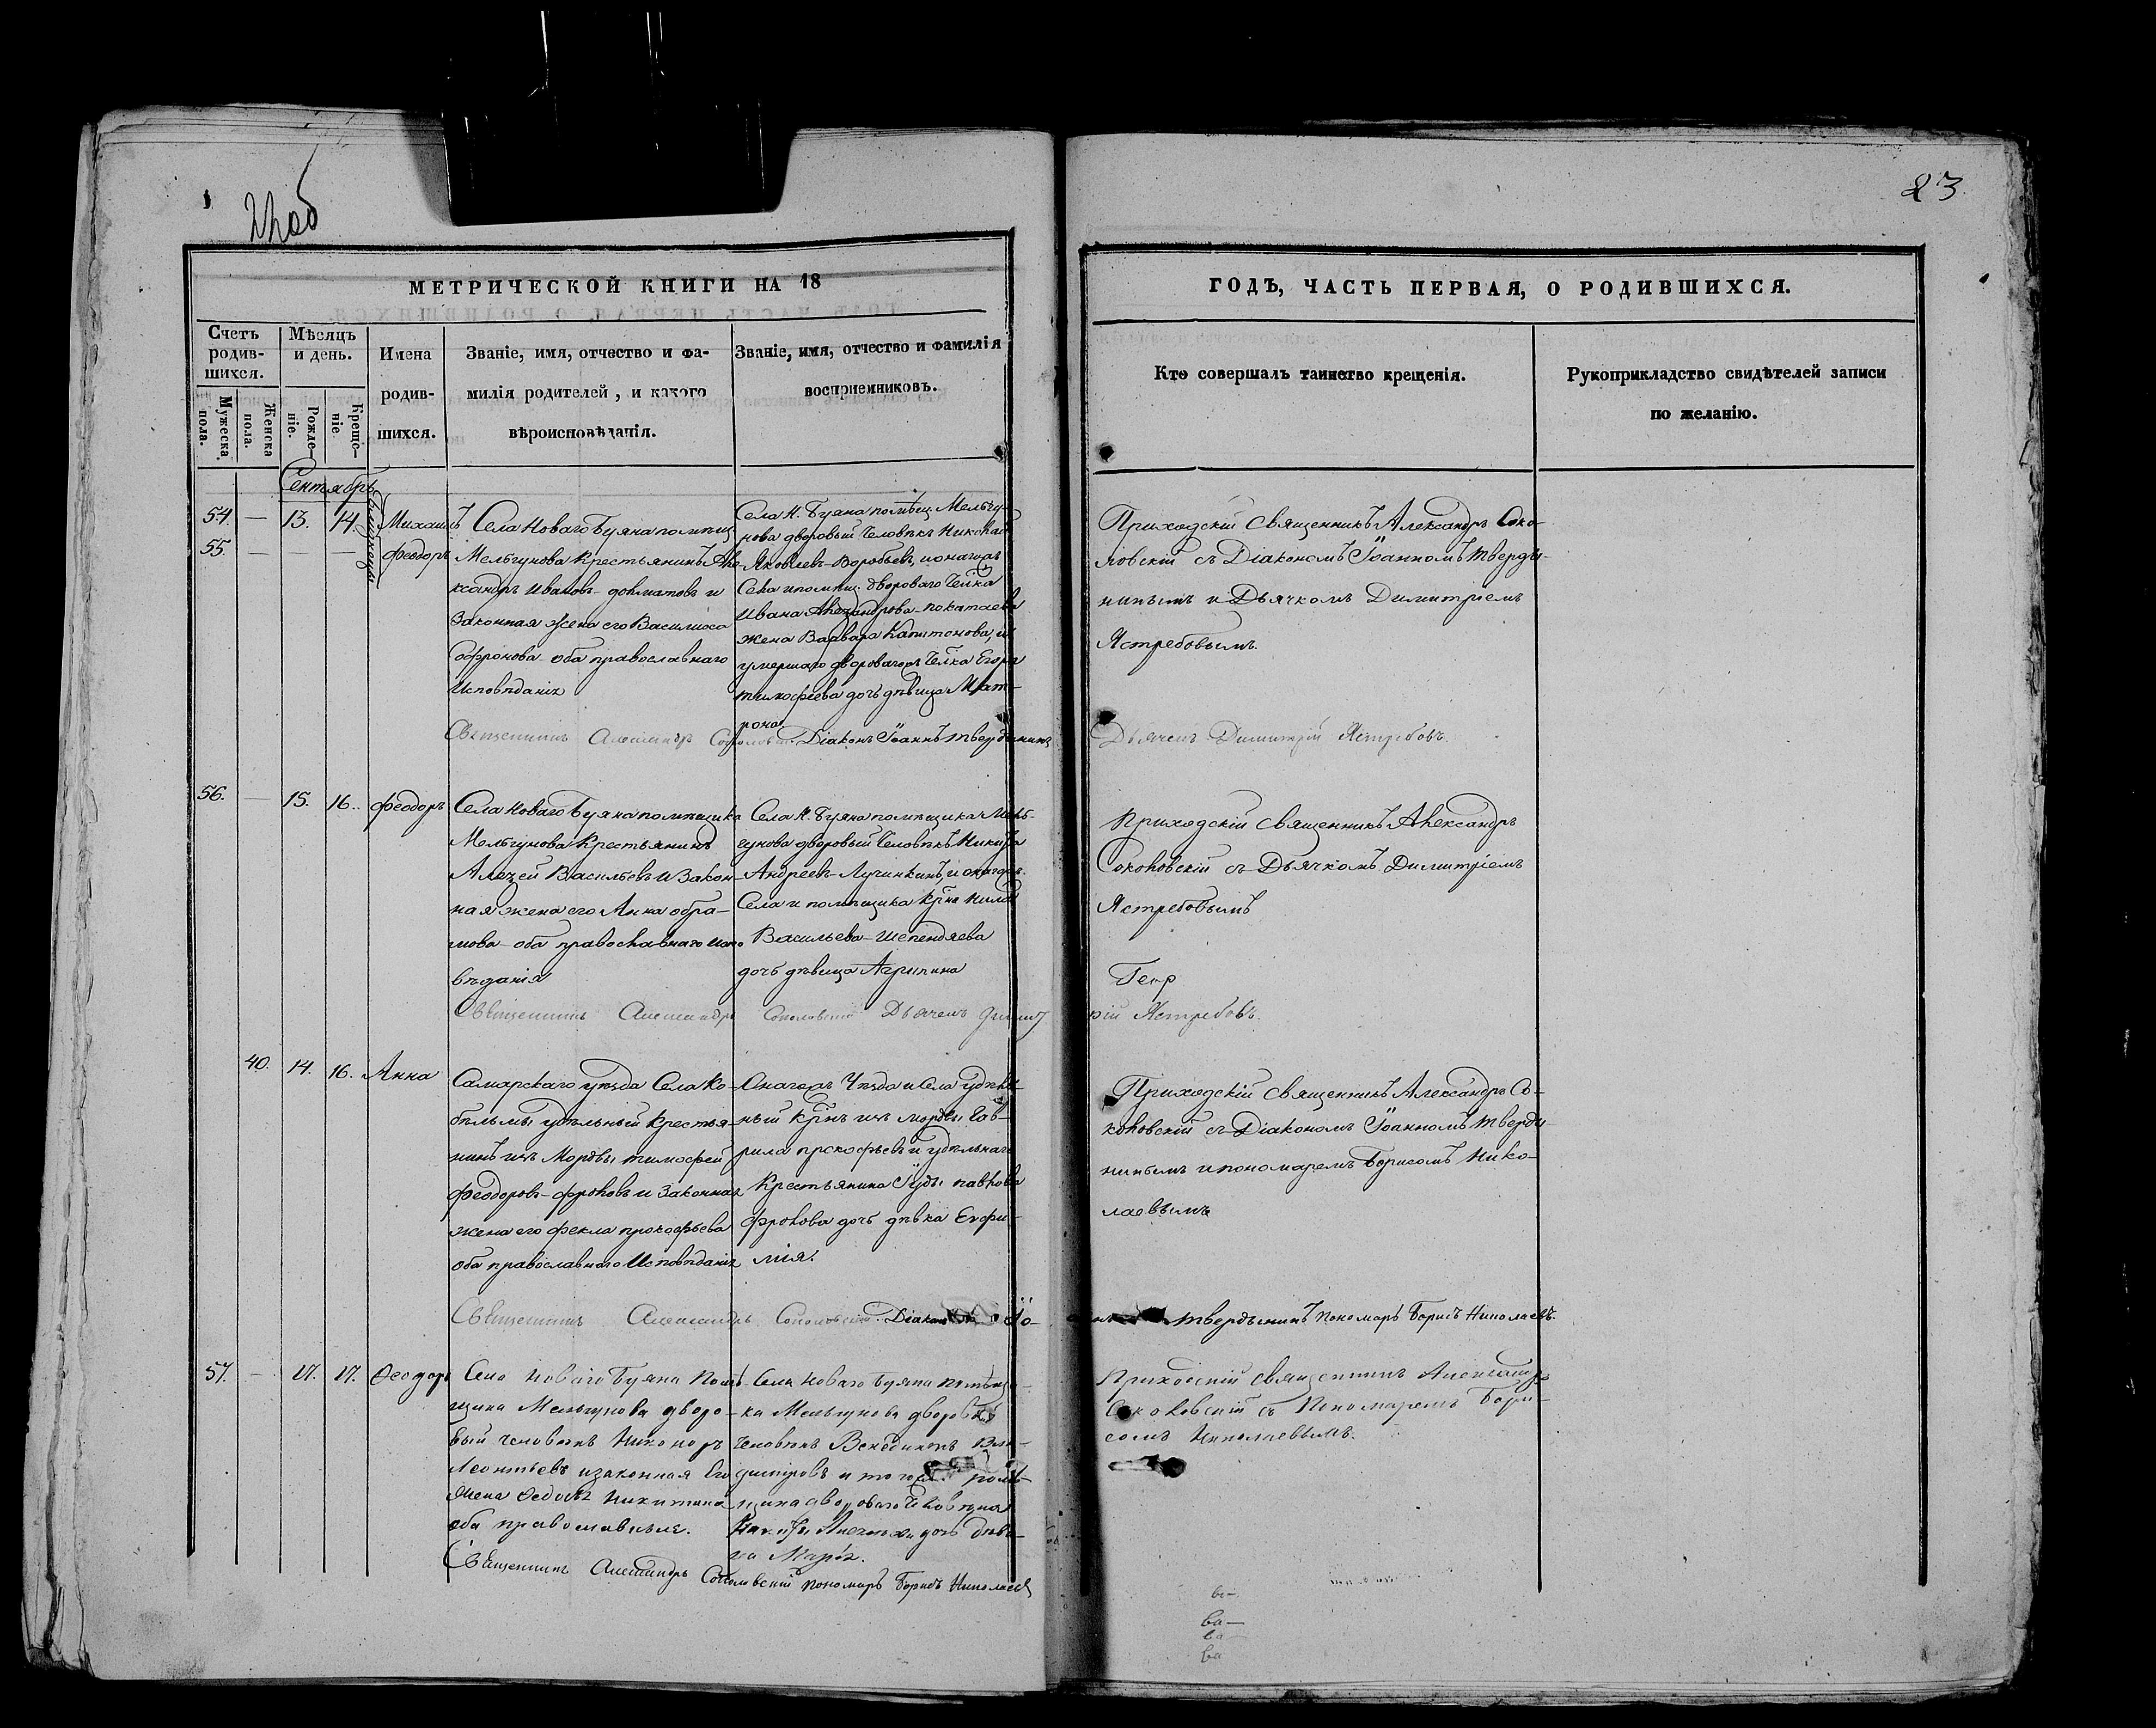 23
МЕТРИЧЕСКОЙ КНИГИ НА 18
ГОДЪ, ЧАСТЬ ПЕРВАЯ, О РОДИВШИХСЯ.
Счетъ родившихся.
Мужеска пола.
Женска пола.
Мѣсяцъ и день.
Рожденіе.
Крещеніе.
Имена родившихся.
Званіе, имя, отчество и фамилія родителей, и какого вѣроисповѣданія.
Званіе, имя, отчество и фамилія воспріемниковъ.
Кто совершалъ таинство крещенія.
Рукоприкладство свидѣтелей записи по желанію.
Сентябрь
54. — 13. 14. Михаилъ
55. — — — Феодоръ
близнецы
Села Новаго Буяна помѣщ
Мельгунова Крестьянинъ Але-
ксандръ Ивановъ и
Законная жена его Василиса
Софронова оба православнаго
Исповѣданія
Села Н. Буяна помѣщ. Мельгу-
нова дворовый Человѣкъ Николай
Яковлевъ Воробьевъ, и онагожъ
Села и помѣщ. двороваго
Ивана Александрова
жена Варвара Капитонова, и
умершаго двороваго Егора
Тимофеева дочь дѣвица Мат-
рона
Приходскій Священникъ Александръ Соко-
ловскій съ Діакономъ Іоанномъ Тверды-
нинымъ и Дьячкомъ Димитріемъ
Ястребовымъ.
Священникъ Александръ Соколовскій. Діаконъ Іоаннъ Твердынинъ
Дьячекъ Димитрій Ястребовъ.
56. — 15. 16. Феодоръ
Села Новаго Буяна помѣщика
Мельгунова Крестьянинъ
Алексей Васильевъ и Закон-
ная жена его Анна Абра-
мова оба православнаго испо
вѣданія
Села Н. Буяна помѣщика Мель-
гунова дворовый Человѣкъ Никита
Андреевъ Лучинкинъ, и онагожъ
Села и помѣщика
Васильева
дочь дѣвица Агрипина
Приходскій Священникъ Александръ
Соколовскій съ Дьячкомъ Димитріемъ
Ястребовымъ
Священникъ Александръ Соколовскій Дьячекъ Димит
рій Ястребовъ.
40. 14. 16. Анна
Самарскаго уѣзда Села Ко-
бельмы удѣльный Крестья-
нинъ изъ Мордвы Тимофей
Феодоровъ Фроловъ и Законная
жена его Фекла Прокофьева
оба православнаго Исповѣданія
Онагожъ Уѣзда и Села удѣль-
ный изъ Мордвы Гав-
рила Прокофьевъ и удѣльнаго
Крестьянина Іуды Павлова
Фролова дочь дѣвка Евфи-
мія.
Приходскій Священникъ Александръ Со-
коловскій съ Діакономъ Іоанномъ Тверды-
нинымъ и пономаремъ Борисомъ Нико-
лаевымъ
Священникъ Александръ Соколовскій. Діаконъ Іо-
Твердынинъ Пономарь Борисъ Николаевъ.
57. — 17. 17. Ѳеодоръ
Села Новаго Буяна Помѣ-
щика Мельгунова дворо-
вый человѣкъ Никоноръ
Леонтьевъ и законная Его
жена Никитина
оба православные.
Села Новаго Буяна Помѣщи-
ка Мельгунова дворовый
человѣкъ
и тогожъ помѣ-
щика двороваго Человѣка
дочь дѣви-
ца Марія.
Приходскій священникъ Александръ
Соколовскій съ Пономаремъ Бори-
сомъ Николаевымъ.
Священникъ Александръ Соколовскій пономарь Борисъ Николаевъ
ва—
ва—
ва